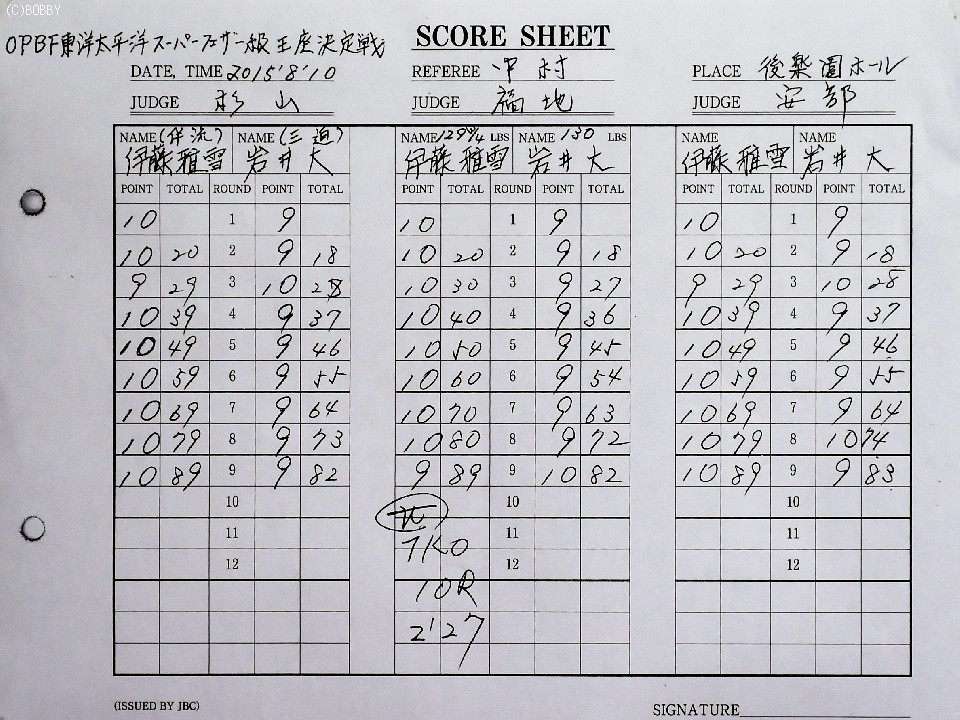 (C)BOBBY
OPBF東洋太平洋スーパーフェザー級王座決定戦
SCORE SHEET
DATE, TIME 2015'8'10 REFEREE 中村 PLACE 後楽園ホール
JUDGE 杉山 JUDGE 福地 JUDGE 安部
NAME (伴流) NAME (三迫) NAME 129 3/4 LBS NAME 130 LBS NAME NAME
伊藤雅雪 岩井大 伊藤雅雪 岩井大 伊藤雅雪 岩井大
POINT TOTAL ROUND POINT TOTAL POINT TOTAL ROUND POINT TOTAL POINT TOTAL ROUND POINT TOTAL
10 1 9 10 1 9 10 1 9
10 20 2 9 18 10 20 2 9 18 10 20 2 9 18
9 29 3 10 28 10 30 3 9 27 9 29 3 10 28
10 39 4 9 37 10 40 4 9 36 10 39 4 9 37
10 49 5 9 46 10 50 5 9 45 10 49 5 9 46
10 59 6 9 55 10 60 6 9 54 10 59 6 9 55
10 69 7 9 64 10 70 7 9 63 10 69 7 9 64
10 79 8 9 73 10 80 8 9 72 10 79 8 10 74
10 89 9 9 82 9 89 9 10 82 10 89 9 9 83
10 10 10
11 TKO 11 11
12 12 12
10R
2'27
(ISSUED BY JBC) SIGNATURE